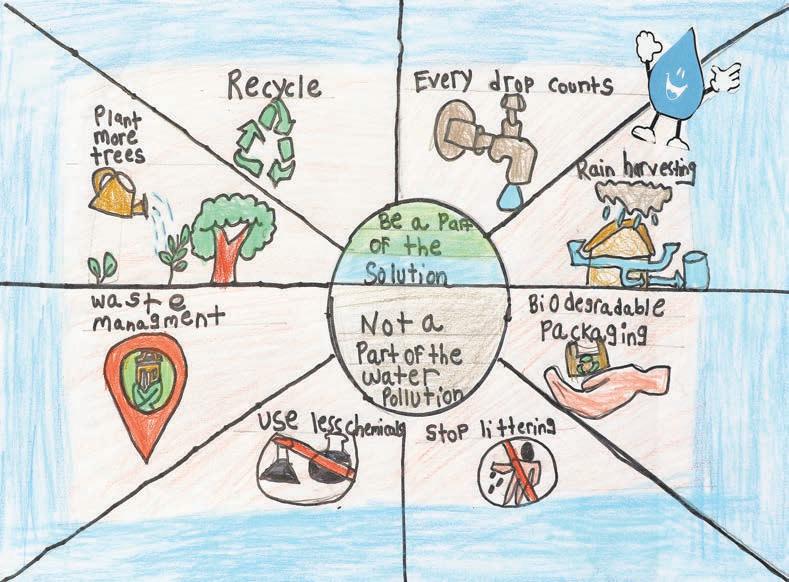 Recycle
Every drop counts
Plant
more
trees
Rain harvesting
Be a Part
of the
Solution
Not a
Part of the
water
Pollution
waste
managment
Biodegradable
Packaging
use less chemicals
Stop littering